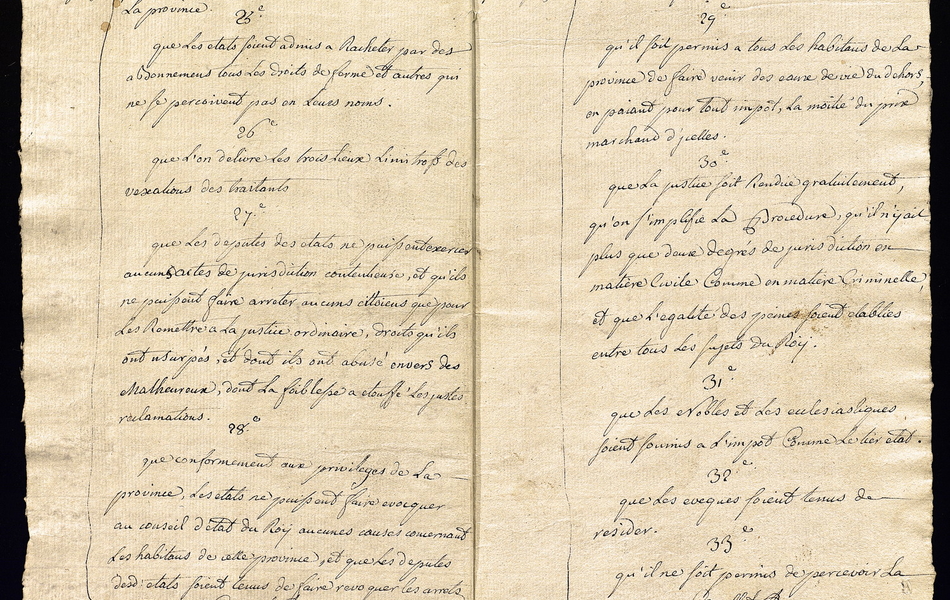 la province.
25e
que les etats soient admis a Racheter par des
abonnemens tous les droits de forme et autres qui
ne se percoivent pas en leurs noms.
26e
que l'on delivre les trois lieux limitrofs des
vexations des traitants
27e
que les deputés des etats ne puissent exercer
aucuns actes de jurisdiction contentieuse, et qu'ils
ne puissent faire arreter aucuns citoiens que pour
les Remettre a la justice ordinaire, droits qu'ils
ont usurpés, et dont ils ont abusé envers des
Malheureux, dont la foiblesse a etouffé les justes
reclamations.
28e
que conformement aux privileges de la
province, les etats ne puissent faire evocquer
au conseil d'etat du Roy aucunes causes concernant
les habitans de cette province, et que les deputés
desd. etats soient tenus de faire revoquer les arrets
29e
qu'il soit permis a tous les habitans de la
province de faire venir des eaux de vie du dehors,
en paiant pour tout impôt, la moitié du prix
marchand d'jcelles.
30e
que la justice soit Rendüe gratuitement,
qu'on simplifie la Procedure, qu'il n'y ait
plus que deux degrés de jurisdiction en
matière Civile Comme en matière Criminelle,
et que l'egalité des peines soient etablies
entre tous les sujets du Roy.
31e
que les Nobles et les eclesiastiques
soient soumis a l'impot Comme le tier etat.
32e
que les eveques soient tenus de
resider.
33e
qu'il ne soit permis de percevoir la